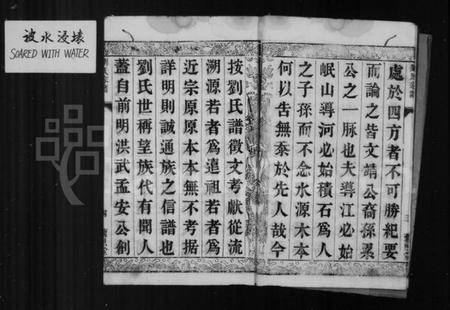 被水浸壊
SOAKED WITH WATER
處於四方者不可勝紀要
而論之皆文靖公裔孫累
公之一脉也夫導江必始
岷山導河必始積石為人
之子孫而不念水源木本
何以告無忝於先人哉今
按劉氏譜徵文考獻從流
溯源若者為遠祖若者為
近宗原原本本無不考據
詳明則誠通族之信譜也
劉氏世稱望族代有聞人
蓋自前明洪武孟安公創